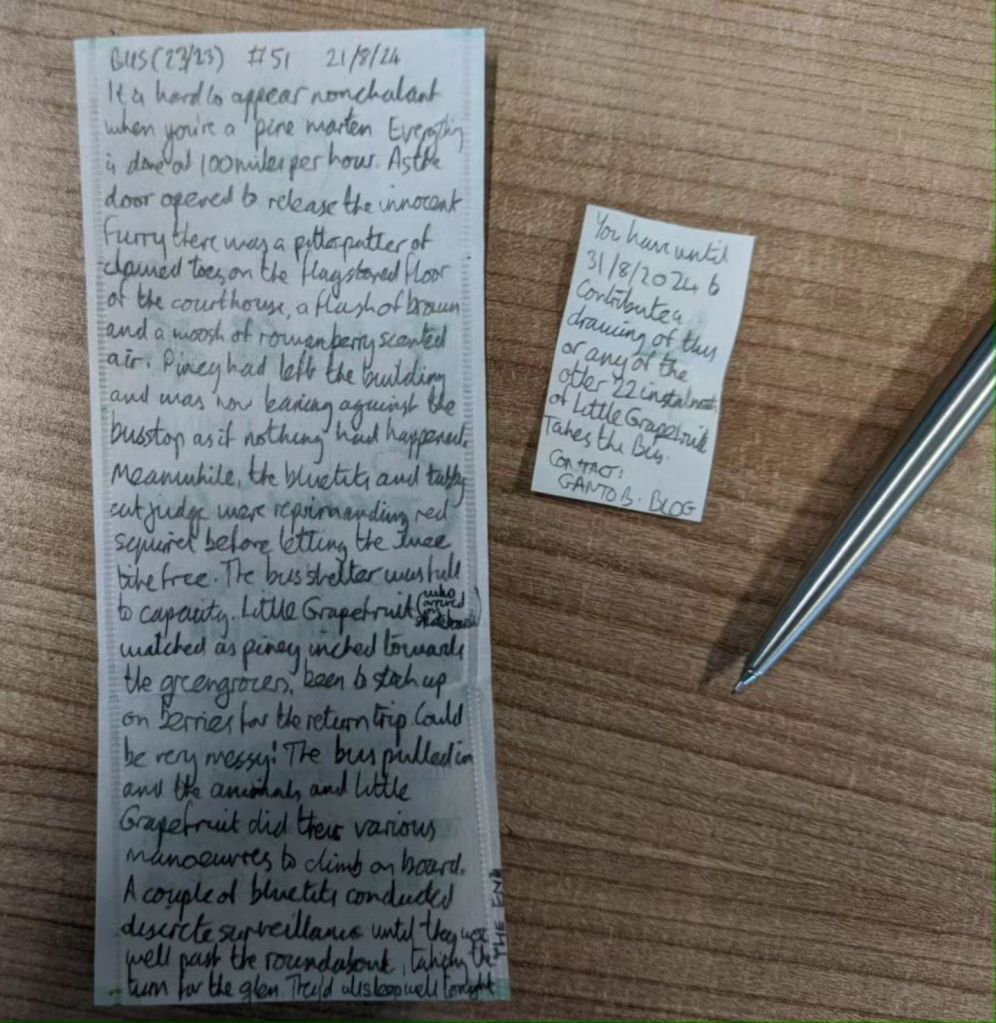 BUS (23/23) #51 21/8/24
It's hard to appear nonchalant
when you're a pine marten Everything
is done at 100 miles per hour. As the
door opened to release the innocent
furry there was a pitta patter of
clawed toes on the flagstoned floor
of the courthouse, a flash of brown
and a woosh of rowanberry scented
air. Piney had left the building
and was now leaning against the
busstop as if nothing had happened.
Meanwhile, the bluetits and tabby
cat judge were reprimanding red
squirrel before letting the
free. The bus shelter was full
to capacity. Little Grapefruit (who
arrived
skateboard)
watched as piney inched towards
the greengrocers, keen to stock up
on berries for the return trip. Could
be very messy! The bus pulled in
and the animals and Little
Grapefruit did their various
manoeuvres to climb on board.
A couple of bluetits conducted
discrete surveillance until they were
well past the roundabout, taking the
turn for the glen. They'd all sleep well tonight
THE END
You have until
31/8/2024 to
Contribute a
drawing of this
or any of the
other 22 instalments
of Little Grapefruit
Takes the Bus.
CONTACT:
GANTOB.BLOG